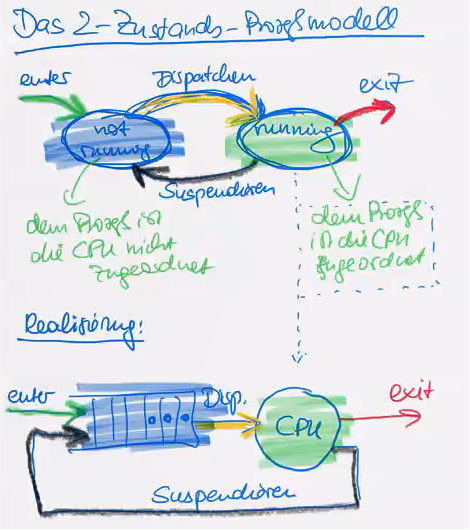 Das 2-Zustands-Prozeßmodell
enter
Dispatchen
exit
not
running
running
Suspendieren
dem Prozeß ist
die CPU nicht
zugeordnet
dem Prozeß
ist die CPU
zugeordnet
Realisierung:
enter
Disp.
CPU
exit
Suspendieren